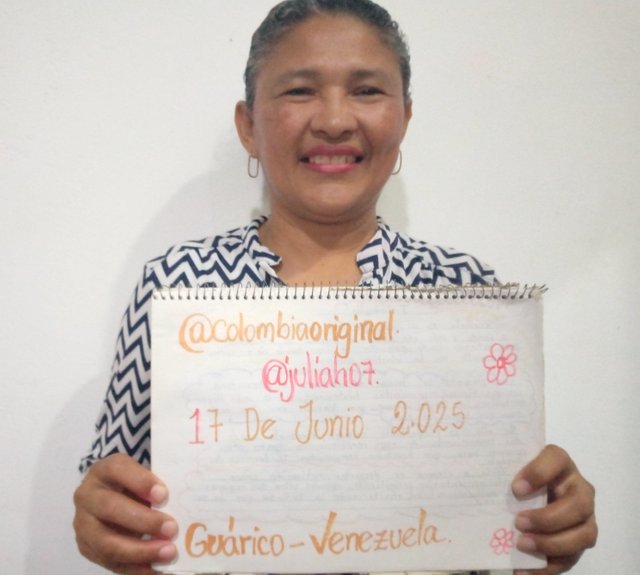 @colombiaoriginal.
@juliah07.
17 De Junio 2.025
Guárico - Venezuela.